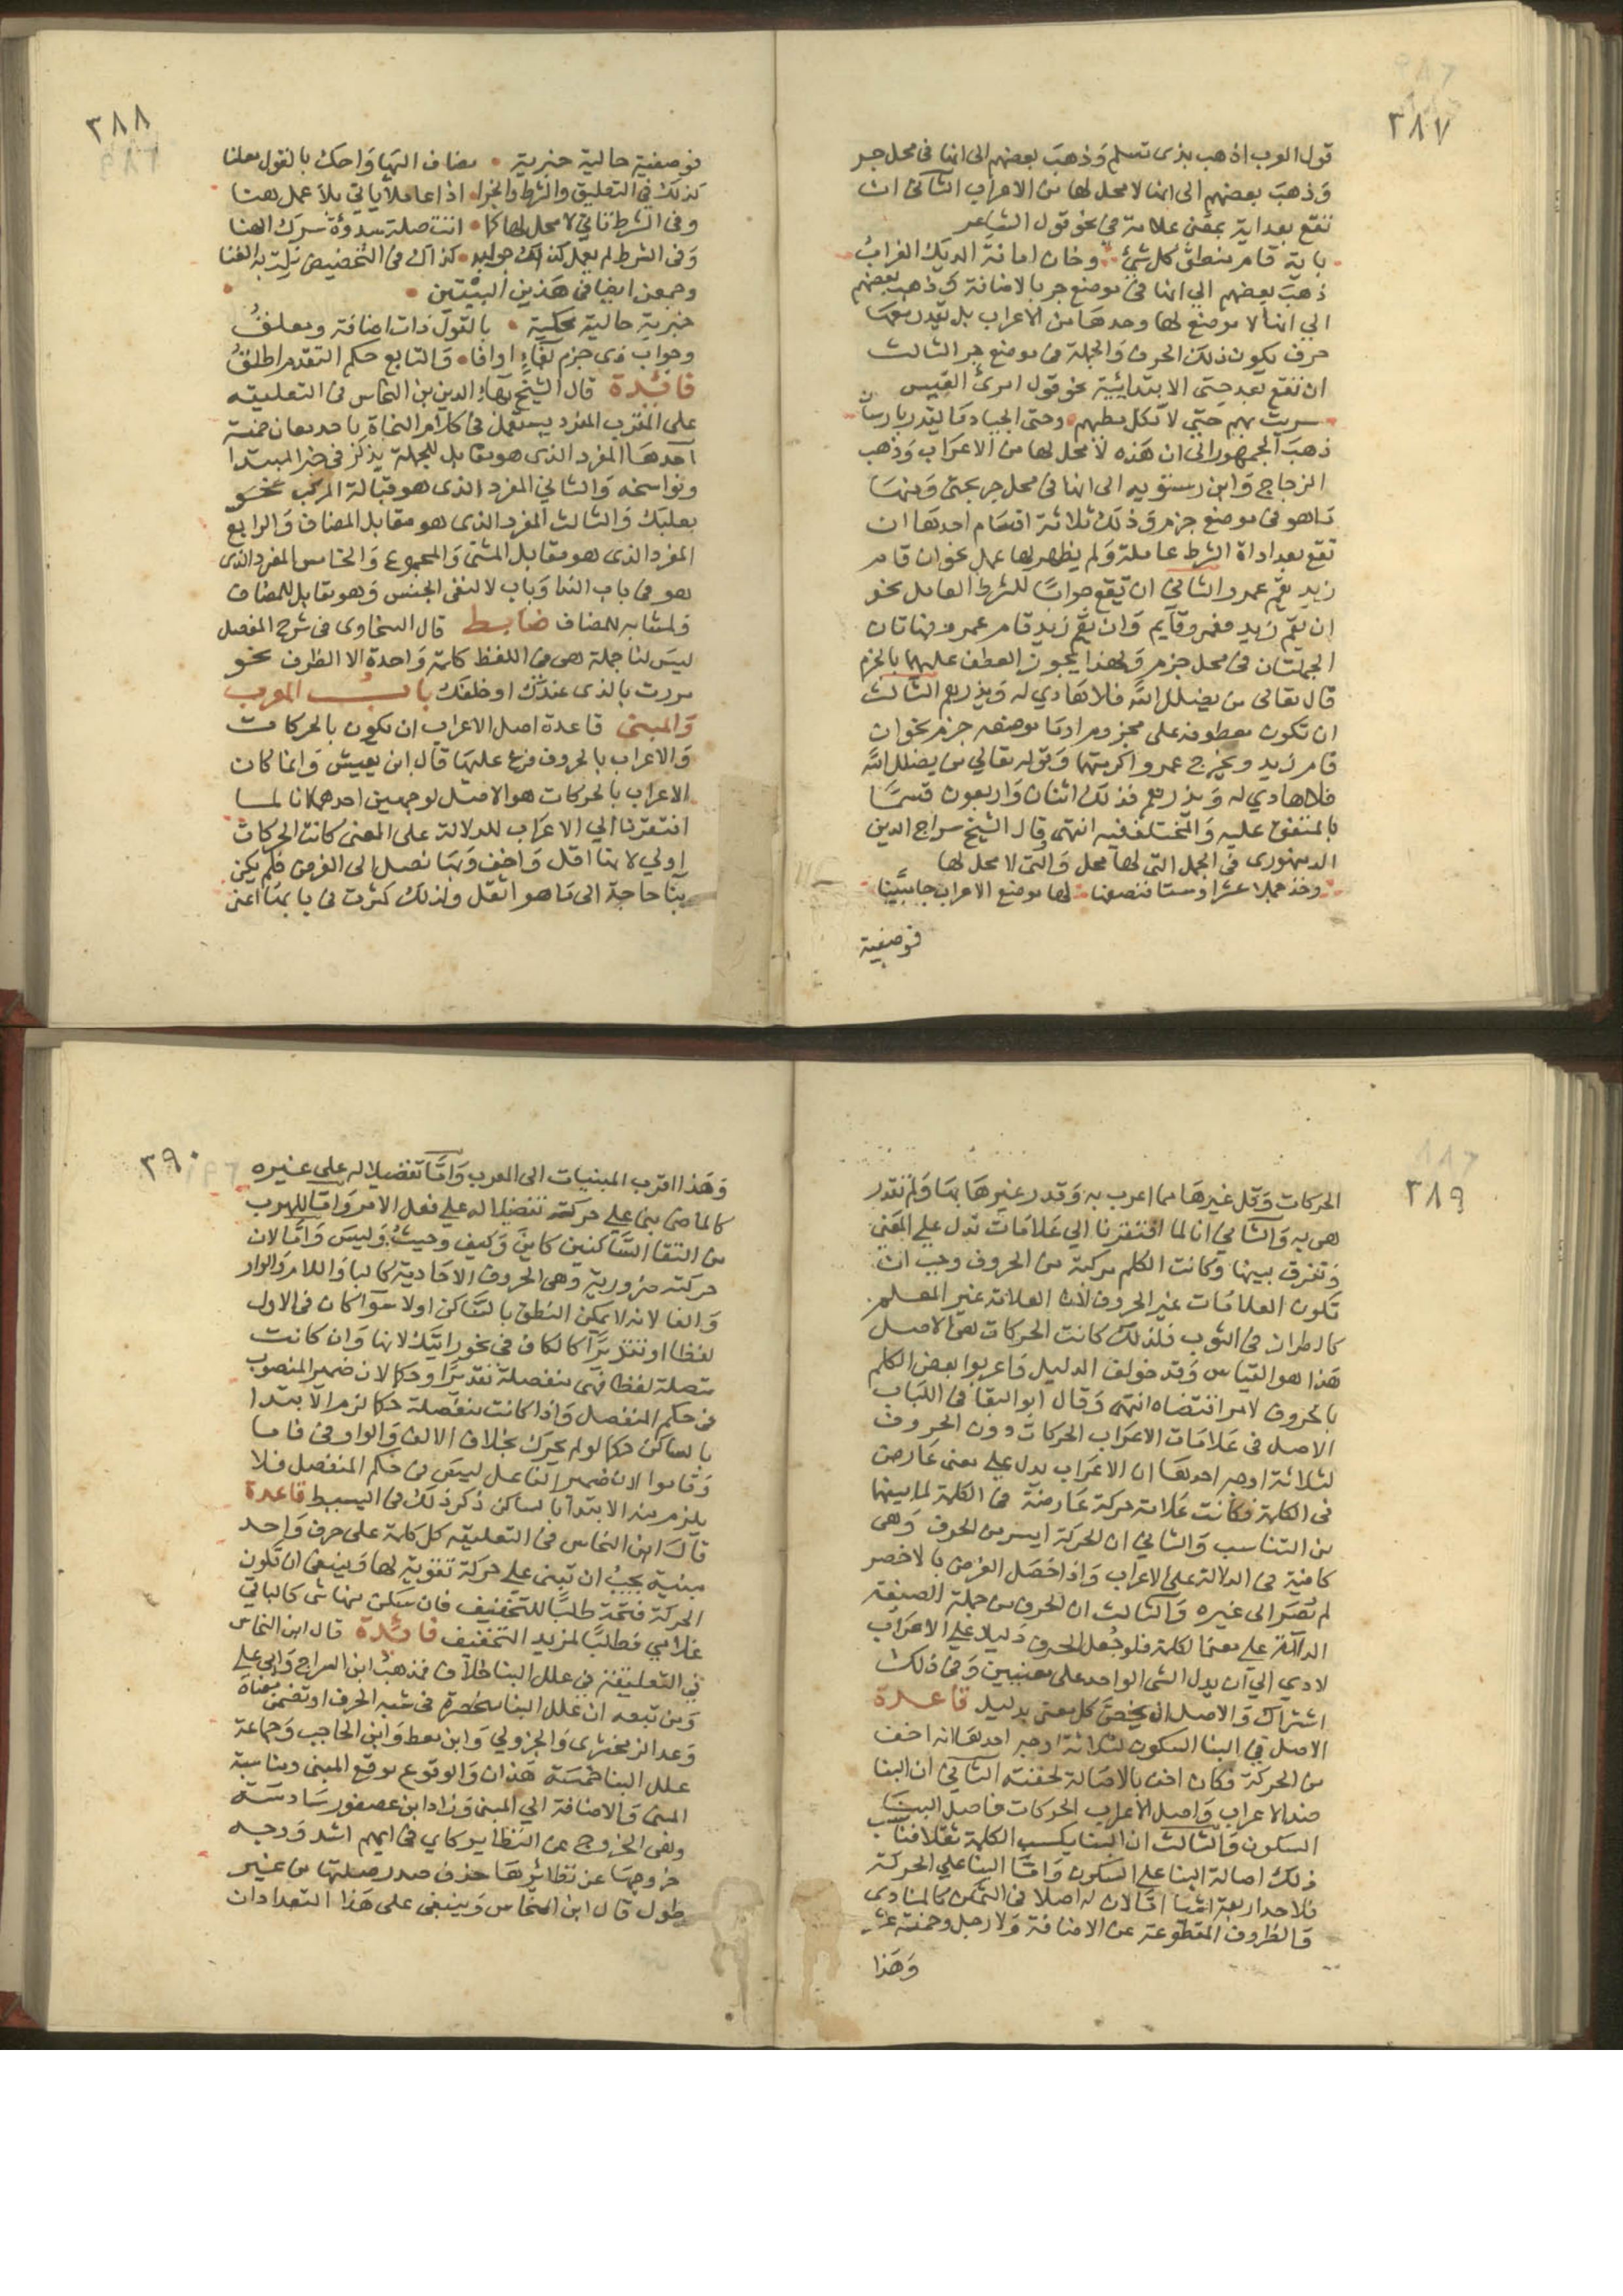 ٣٨٧
قول العرب اذهب بذي تسلم وَذهبَ بعضهم الى انها في محل جر
وَذهبَ بعضهم الى انها لا محل لها من الاعراب الثاني ان
تقع بعد اية بمعنى علامة في نحو قول الشاعر
باية قام ينطق كل شئ وخان امانة الديك الغرابُ
ذهبَ بعضهم الي انها في موضع جر بالاضافة وذهب بعضهم
الي انها لا موضع لها وحدهَا من الاعراب بل يقدر معهَا
حرف يكون ذلك الحرف وَالجملة في موضع جر الثالث
ان تقع بعد حتى الابتدائية نحو قول امرئ القيس
سريت بهم حتى لا تكل مطيهم وحتى الجياد مَا يقدن بارسان
ذهبَ الجمهور الى ان هَذه لا محل لها من الاعرَاب وَذهب
الزجاج وَابن درستويه الى انها في محل جر بحتى وَمنهَا
مَا هو في موضع جزم وَذلك ثلاثة اقسَام احدهَا ان
تقع بعد اداة الشرط عاملة وَلم يظهر لها عمل نحو ان قام
زيد يقم عمرو الثاني ان تقع جوابًا للشرط العامل نحو
ان يقم زيد فعمرو قايم وَان يقم زيد قام عمرو فهاتان
الجملتان في محل جزم وَلهذا يجوز العطف عليهما بالجزم
قال تعالى من يضلل الله فلا هَادي له وَيذرهم الثالث
ان تكون معطوفة على مجزوم او مَا موضعه جزم نحو ان
قام زيد ويخرج عمرو اكرمتهما وَقوله تعالي من يضلل الله
فلا هادي له وَيذرهم فذلك اثنان وَاربعون قسمًا
بالمتفق عليه وَالمختلف فيه انتهى وقال الشيخ سراج الدين
الدمنهوري في الجمل التى لها محل وَالتى لا محل لها
وخذ جملا عشرا وستا فنصفها لها موضع الاعراب جا مبيّنا
فوصفية
٣٨٨
فوصفية حالية خبرية مضاف اليهَا وَاحك بالقول معلنا
كذلك في التعليق والشرط والجزا اذا عامل ياتي بلا عمل هنا
وفي الشرط لم يعمل كذاك جوابه كذاك في التخصيص نلت به الغنا
وجمعن ايضا في هَذين البيتين
خبرية حالية محكية بالقول ذات اضافة ومعلقُ
وجواب ذي جزم بفاءٍ او اذا وَالتابع حكم التقدم اطلقُ
فائدة قال الشيخ بهَاء الدين بن النحاس في التعليقه
على المقرب المفرد يستعمل في كلام النحاة باحد معان خمسة
احدهَا المفرد الذي هو مقابل للجملة يذكر في خبر المبتدا
ونواسخه وَالثاني المفرد الذي هو قبالة المركب نحو
بعلبك وَالثالث المفرد الذي هو مقابل المضاف وَالرابع
المفرد الذي هو مقابل المثنى وَالمجموع وَالخامس المفرد الذي
هو في باب الندا وَباب لا لنفي الجنس وَهو مقابل للمضاف
ولمشابه للمضاف ضابط قال السخاوى في شرح المفصل
ليسَ لنا جملة هى في اللفظ كلمة وَاحدة الا الظرف نحو
مررت بالذى عندك او خلفك باب المعرب
وَالمبنى قاعدة اصل الاعراب ان يكون بالحركات
وَالاعراب بالحروف فرع عليهَا قال ابن يعيش وَانما كان
الاعراب بالحركات هو الاصل لوجهين احدهما انا لما
افتقرنا الي الاعرَاب للدلالة على المعنى كانت الحركات
اولي لانها اقل وَاخف وَبهَا نصل الى الغرض فلم يكن
بنَا حاجة الى مَا هو اثقل ولذلك كثرت في بابهَا اعنى
٣٨٩
الحركات وَقل غيرهَا مما اعرب به وَقدر غيرهَا بهَا وَلم تقدر
هى به وَالثاني انا لما افتقرنا الي عَلامَات تدل علي المعَنى
وَتفرق بينها وَكانت الكلم مركبة من الحروف وجب ان
تكون العلامَات غير الحروف لان العلامة غير المعلم
كالطراز في الثوب فلذلك كانت الحركات هى الاصل
هَذا هو القياس وَقد خولف الدليل وَاعربوا بعض الكلم
بالحروف لامر اقتضاه انتهى وَقال ابو البقا في اللبَاب
الاصل في عَلامَات الاعرَاب الحركات دون الحروف
لثلاثة اوجه احدهَا ان الاعرَاب يدل على معنى عَارض
في الكلمة فكانت عَلامة حركة عَارضة في الكلمة لما بينهما
من التناسب وَالثاني ان الحركة ايسر من الحرف وَهى
كافية في الدلالة على الاعراب وَاذا حَصل الغرض بالاخصر
لم يُصَر الى غيره وَالثالث ان الحرف من جملة الصيغة
الدالة علي معنى الكلمة فلو جُعل الحرف دَليلا علي الاعرَاب
لادي الي ان يدل الشي الواحد على معنيين وَفي ذلك
اشتراك وَالاصل ان يخص كل معنى بدليل قاعدة
الاصل في البنا السكون لثلاثة اوجه احدهَا انه اخف
من الحركة فكان احق بالاصَالة لخفته الثاني ان البنا
ضد الاعراب وَاصل الاعراب الحركات فاصل البنَا
السكون وَالثالث ان البنا يكسب الكلمة ثقلا فناسب
ذلك اصالة البنا علي السكون وَامّا البنا علي الحركة
فلاحد اربعة اشيا امّا لان له اصلا في التمكن كالمنادى
وَالظروف المقطوعة عن الاضافة وَلا رجل وخمسة عشر
وَهَذا
٣٩٠
وَهَذا اقرب المبنيات الى المعرب وَامّا تفضيلا له على غيره
كالماضى بنى على حركة تفضيلا له علي فعل الامر وَامّا للهرب
من التقا السَّاكنين كاينَ وَكيف وحيثُ وَليسَ وَامّا لان
حركته ضرورية وهى الحروف الاحَادية كالبا وَاللام وَالواو
وَالفا لانه لا يمكن النطق بالسَّاكن اولا سوآ كان في الاول
لفظا او تقديرًا كالكاف في نحو رايتك لانها وَان كانت
متصلة لفظا فهى منفصلة تقديرًا وحكما لان ضمير المنصوب
في حكم المنفصل وَاذا كانت منفصلة حكما لزم الابتدا
بالساكن حكما لو لم يحرك بخلاف الالف وَالواو في قاما
وَقاموا لان ضمير الفاعل ليسَ في حكم المنفصل فلا
يلزم منه الابتدا بالساكن ذكر ذلك في البسيط قاعدة
قالَ ابن النحاس في التعليقه كل كلمة على حرف وَاحد
مبنية يجبُ ان تبنى علي حركة تقوية لها وَينبغى ان تكون
الحركة فتحة طلبًا للتخفيف فان سكن منها شى كالباقي
غلامي فطلبًا لمزيد التخفيف فائدة قال ابن النحاس
في التعليقة في علل البنا خلاف فمذهبُ ابن السراج وَابي علي
وَمن تبعه ان علل البنا منحصرة في شبه الحرف او تضمن معناه
وَعد الزمخشرى وَالجزولي وَابن معط وَابن الحاجب وَجماعة
علل البنا خمسَة هَذان وَالوقوع موقع المبنى ومناسبة
المبنى وَالاضافة الي المبنى وَزاد ابن عصفور سَادسَة
وهى الخروج عن النظاير كاي في ايهم اشد وَوجه
خروجهَا عن نظائرهَا حذف صدر صلتها من غير
طول قال ابن النحاس وَينبغى على هَذا التعداد ان